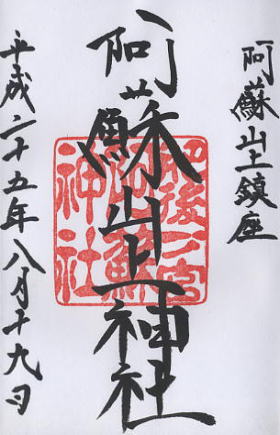 阿蘇山上鎮座
阿蘇山上神社
肥後一宮
阿蘇
神社
平成二十五年八月十九日